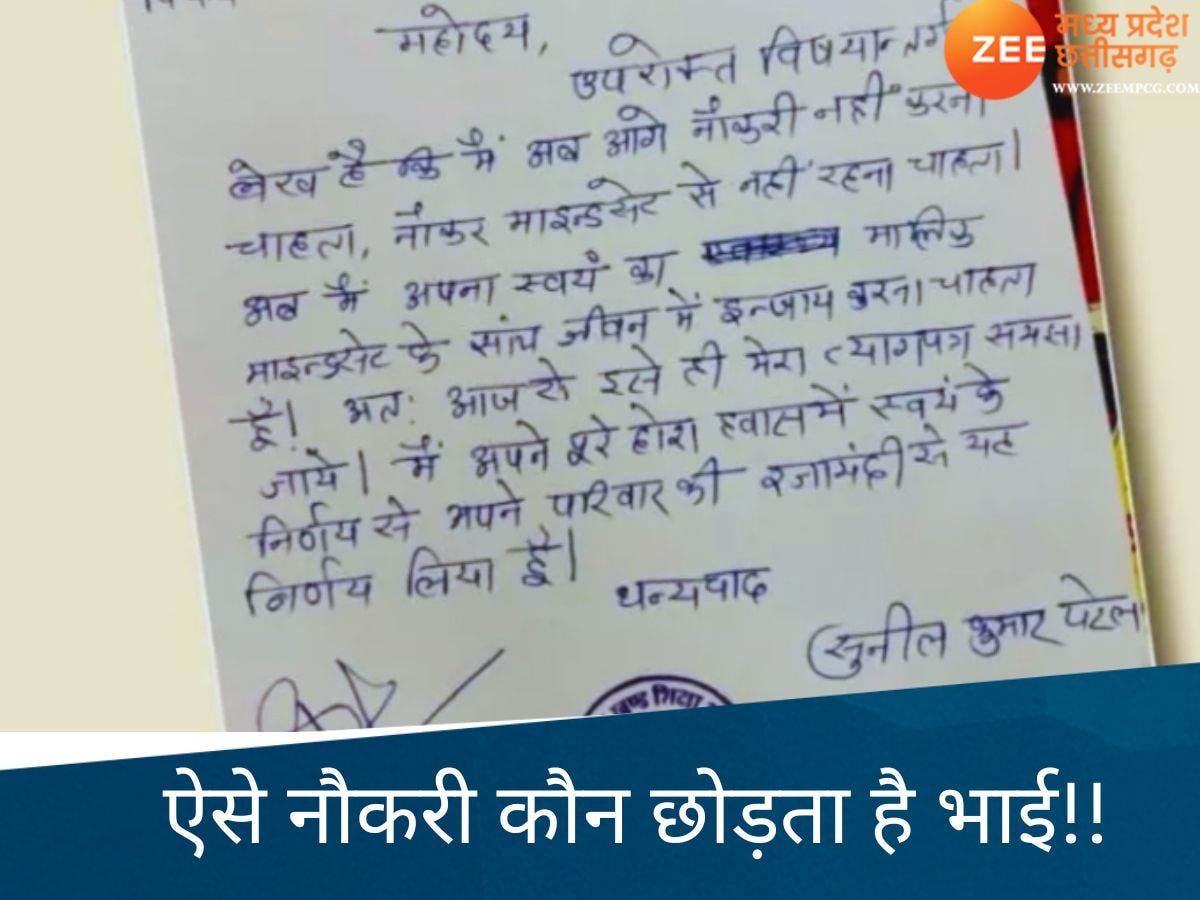 महोदय,
उपरोक्त विषयान्तर्ग
लेख है कि मैं अब आगे नौकरी नहीं करना
चाहता, नौकर माइन्डसेट से नहीं रहना चाहता।
अब मैं अपना स्वयं का मालिक
माइन्डसेट के सांथ जीवन में इन्जाय करना चाहता
हूँ। अतः आज से इसे ही मेरा त्यागपत्र समझा
जाये। मैं अपने पूरे होश हवास में स्वयं के
निर्णय से अपने परिवार की रजामंदी से यह
निर्णय लिया हूँ।
धन्यवाद
(सुनील कुमार पटेल
खण्ड शिक्षा
ZEE मध्य प्रदेश
छत्तीसगढ़
WWW.ZEEMPCG.COM
ऐसे नौकरी कौन छोड़ता है भाई!!